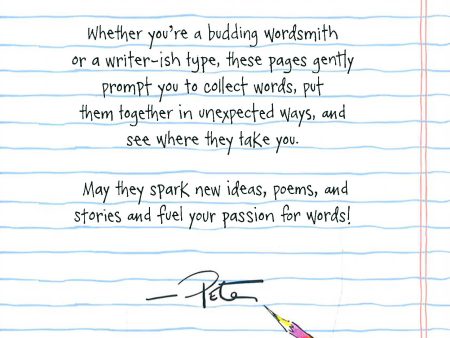 Whether you're a budding wordsmith
or a writer-ish type, these pages gently
prompt you to collect words, put
them together in unexpected ways, and
see where they take you.
May they spark new ideas, poems, and
stories and fuel your passion for words!
— Peter